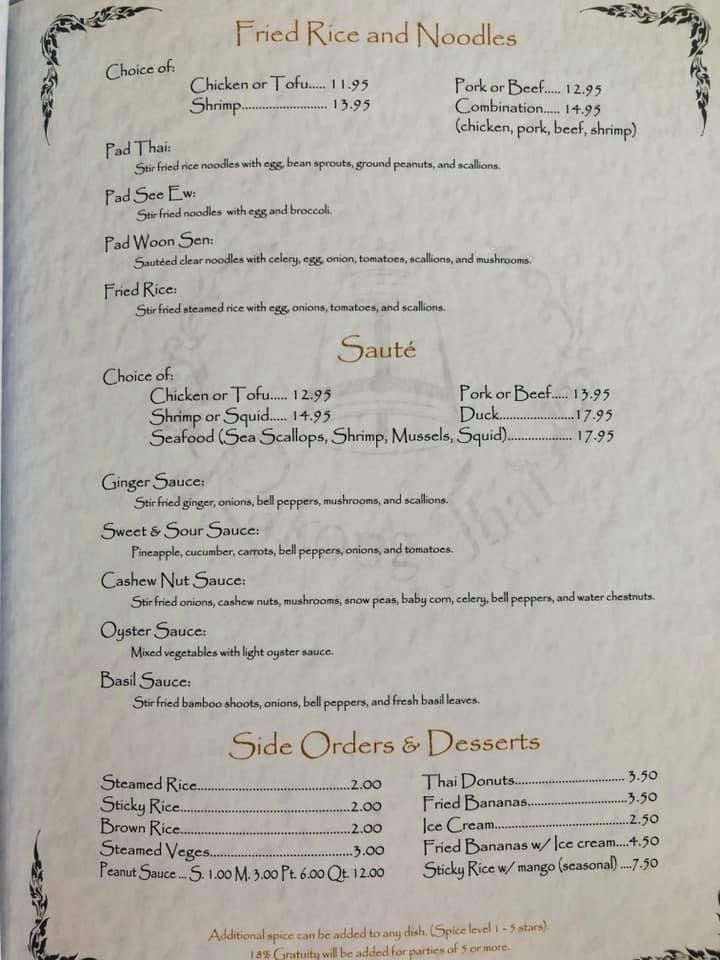 Fried Rice and Noodles
Choice of:
Chicken or Tofu..... 11.95 Pork or Beef..... 12.95
Shrimp.......................... 13.95 Combination..... 14.95
(chicken, pork, beef, shrimp)
Pad Thai:
Stir fried rice noodles with egg, bean sprouts, ground peanuts, and scallions.
Pad See Ew:
Stir fried noodles with egg and broccoli.
Pad Woon Sen:
Sautéed clear noodles with celery, egg, onion, tomatoes, scallions, and mushrooms.
Fried Rice:
Stir fried steamed rice with egg, onions, tomatoes, and scallions.
Sauté
Choice of:
Chicken or Tofu..... 12.95 Pork or Beef..... 13.95
Shrimp or Squid..... 14.95 Duck.......................17.95
Seafood (Sea Scallops, Shrimp, Mussels, Squid)................... 17.95
Ginger Sauce:
Stir fried ginger, onions, bell peppers, mushrooms, and scallions.
Sweet & Sour Sauce:
Pineapple, cucumber, carrots, bell peppers, onions, and tomatoes.
Cashew Nut Sauce:
Stir fried onions, cashew nuts, mushrooms, snow peas, baby corn, celery, bell peppers, and water chestnuts.
Oyster Sauce:
Mixed vegetables with light oyster sauce.
Basil Sauce:
Stir fried bamboo shoots, onions, bell peppers, and fresh basil leaves.
Side Orders & Desserts
Steamed Rice.............................................2.00 Thai Donuts................................ 3.50
Sticky Rice..................................................2.00 Fried Bananas.............................3.50
Brown Rice..................................................2.00 Ice Cream.......................................2.50
Steamed Veges..........................................3.00 Fried Bananas w/ Ice cream....4.50
Peanut Sauce ... S. 1.00 M. 3.00 Pt. 6.00 Qt. 12.00 Sticky Rice w/ mango (seasonal) ....7.50
Additional spice can be added to any dish. (Spice level 1 - 5 stars).
18% Gratuity will be added for parties of 5 or more.